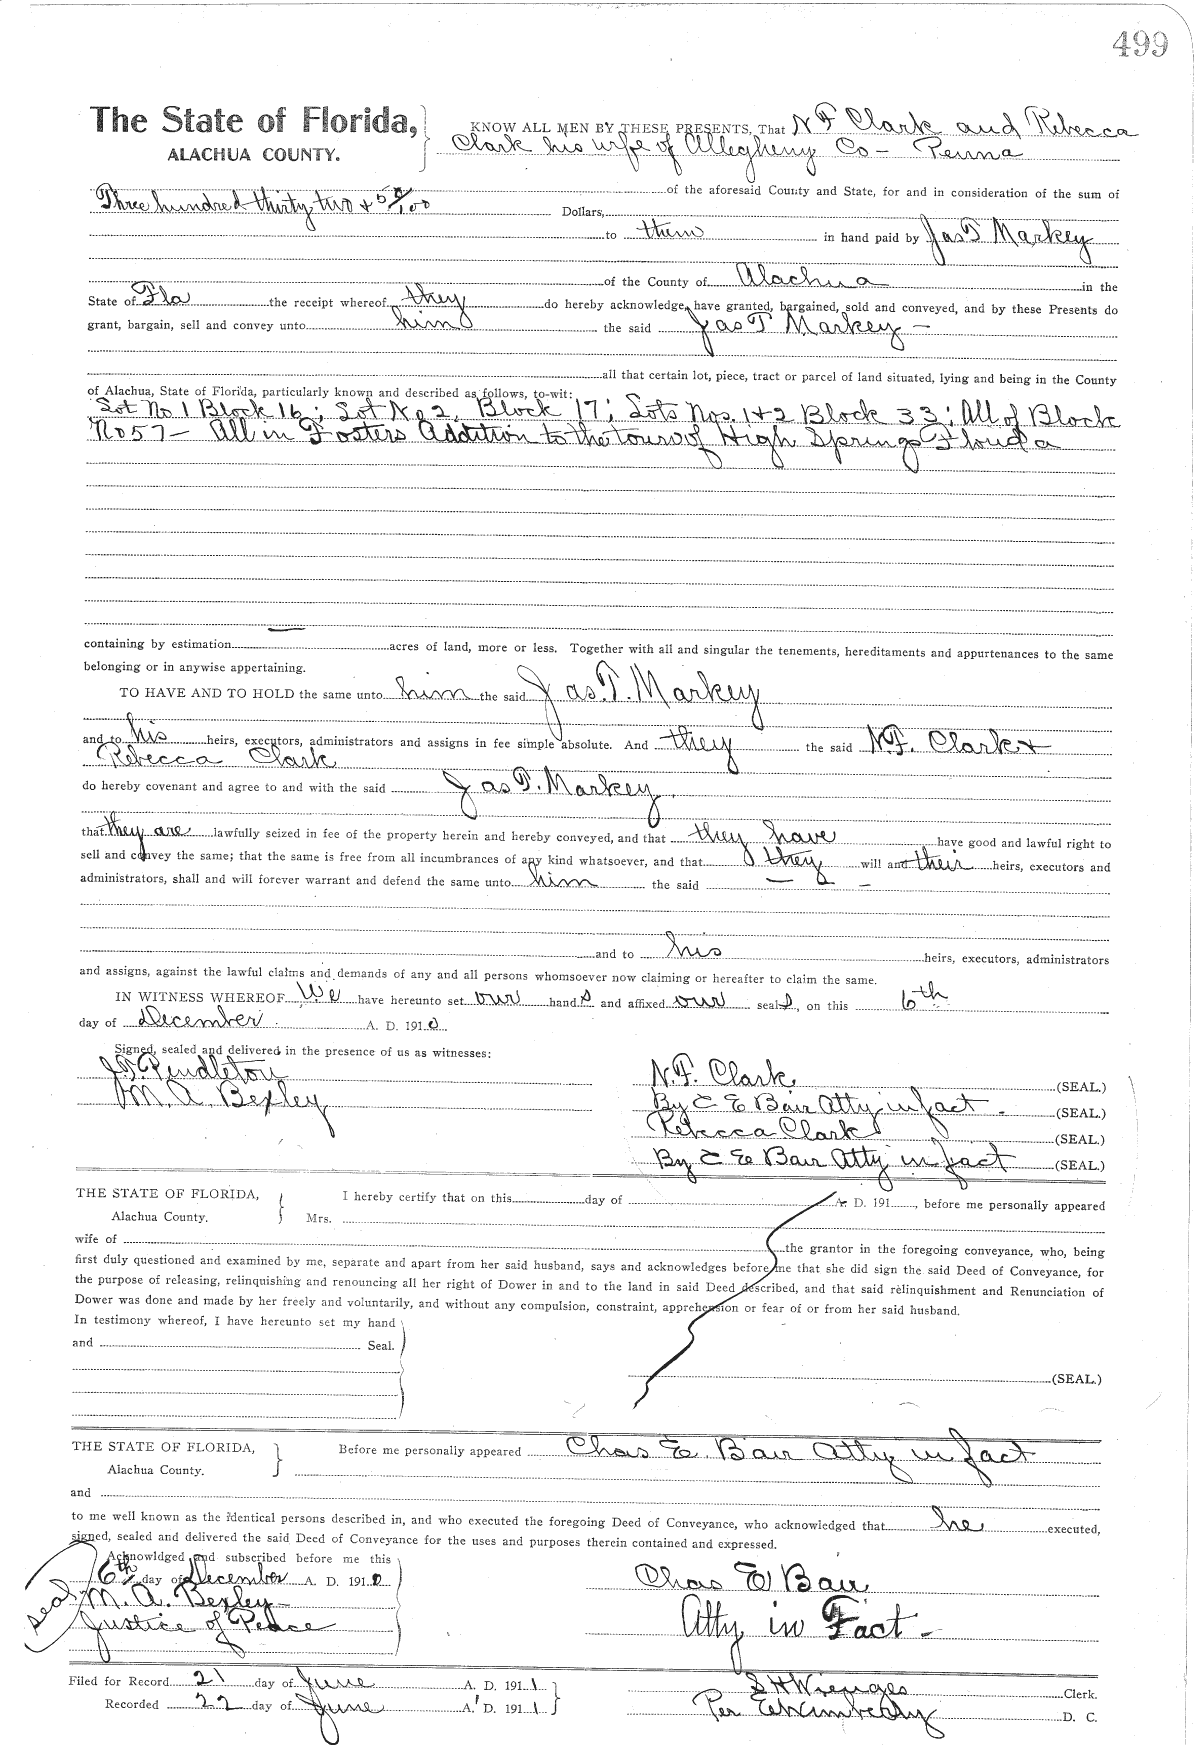 499
The State of Florida,
ALACHUA COUNTY.
KNOW ALL MEN BY THESE PRESENTS, That N F Clark and Rebecca
Clark his wife of Allegheny Co - Penna
of the aforesaid County and State, for and in consideration of the sum of
Three hundred thirty two + 50/100 Dollars,
to them in hand paid by Jas T Markey
of the County of Alachua in the
State of Fla the receipt whereof they do hereby acknowledge, have granted, bargained, sold and conveyed, and by these Presents do
grant, bargain, sell and convey unto him the said Jas T Markey -
all that certain lot, piece, tract or parcel of land situated, lying and being in the County
of Alachua, State of Florida, particularly known and described as follows, to-wit:
Lot No 1 Block 16; Lot No 2, Block 17; Lots Nos. 1 & 2 Block 33; All of Block
No 57 - All in Fosters Addition to the town of High Springs Florida
containing by estimation acres of land, more or less. Together with all and singular the tenements, hereditaments and appurtenances to the same
belonging or in anywise appertaining.
TO HAVE AND TO HOLD the same unto him the said Jas. T. Markey
and to his heirs, executors, administrators and assigns in fee simple absolute. And they the said N.F. Clark +
Rebecca Clark
do hereby covenant and agree to and with the said Jas T. Markey.
that they are lawfully seized in fee of the property herein and hereby conveyed, and that they have have good and lawful right to
sell and convey the same; that the same is free from all incumbrances of any kind whatsoever, and that they will and their heirs, executors and
administrators, shall and will forever warrant and defend the same unto him the said
and to his heirs, executors, administrators
and assigns, against the lawful claims and demands of any and all persons whomsoever now claiming or hereafter to claim the same.
IN WITNESS WHEREOF We have hereunto set our hands and affixed our seals, on this 6th
day of December. A. D. 1910.
Signed, sealed and delivered in the presence of us as witnesses:
Pendleton
M. A. Bexley
N. F. Clark. (SEAL.)
By C E Bair Atty in fact. (SEAL.)
Rebecca Clark (SEAL.)
By C E Bair Atty in fact (SEAL.)
THE STATE OF FLORIDA,
Alachua County.
I hereby certify that on this day of A. D. 191 , before me personally appeared
Mrs.
wife of the grantor in the foregoing conveyance, who, being
first duly questioned and examined by me, separate and apart from her said husband, says and acknowledges before me that she did sign the said Deed of Conveyance, for
the purpose of releasing, relinquishing and renouncing all her right of Dower in and to the land in said Deed described, and that said relinquishment and Renunciation of
Dower was done and made by her freely and voluntarily, and without any compulsion, constraint, apprehension or fear of or from her said husband.
In testimony whereof, I have hereunto set my hand
and Seal.
(SEAL.)
THE STATE OF FLORIDA,
Alachua County.
Before me personally appeared Chas E. Bair Atty in fact
and
to me well known as the identical persons described in, and who executed the foregoing Deed of Conveyance, who acknowledged that he executed,
signed, sealed and delivered the said Deed of Conveyance for the uses and purposes therein contained and expressed.
Acknowldged and subscribed before me this
6th day of December A. D. 1910
seal
M. A. Bexley
Justice of Peace
Chas E Bair
Atty in Fact -
Filed for Record 21 day of June A. D. 1911
Recorded 22 day of June A. D. 1911
S H Wienges Clerk.
Per E Wimberly D. C.